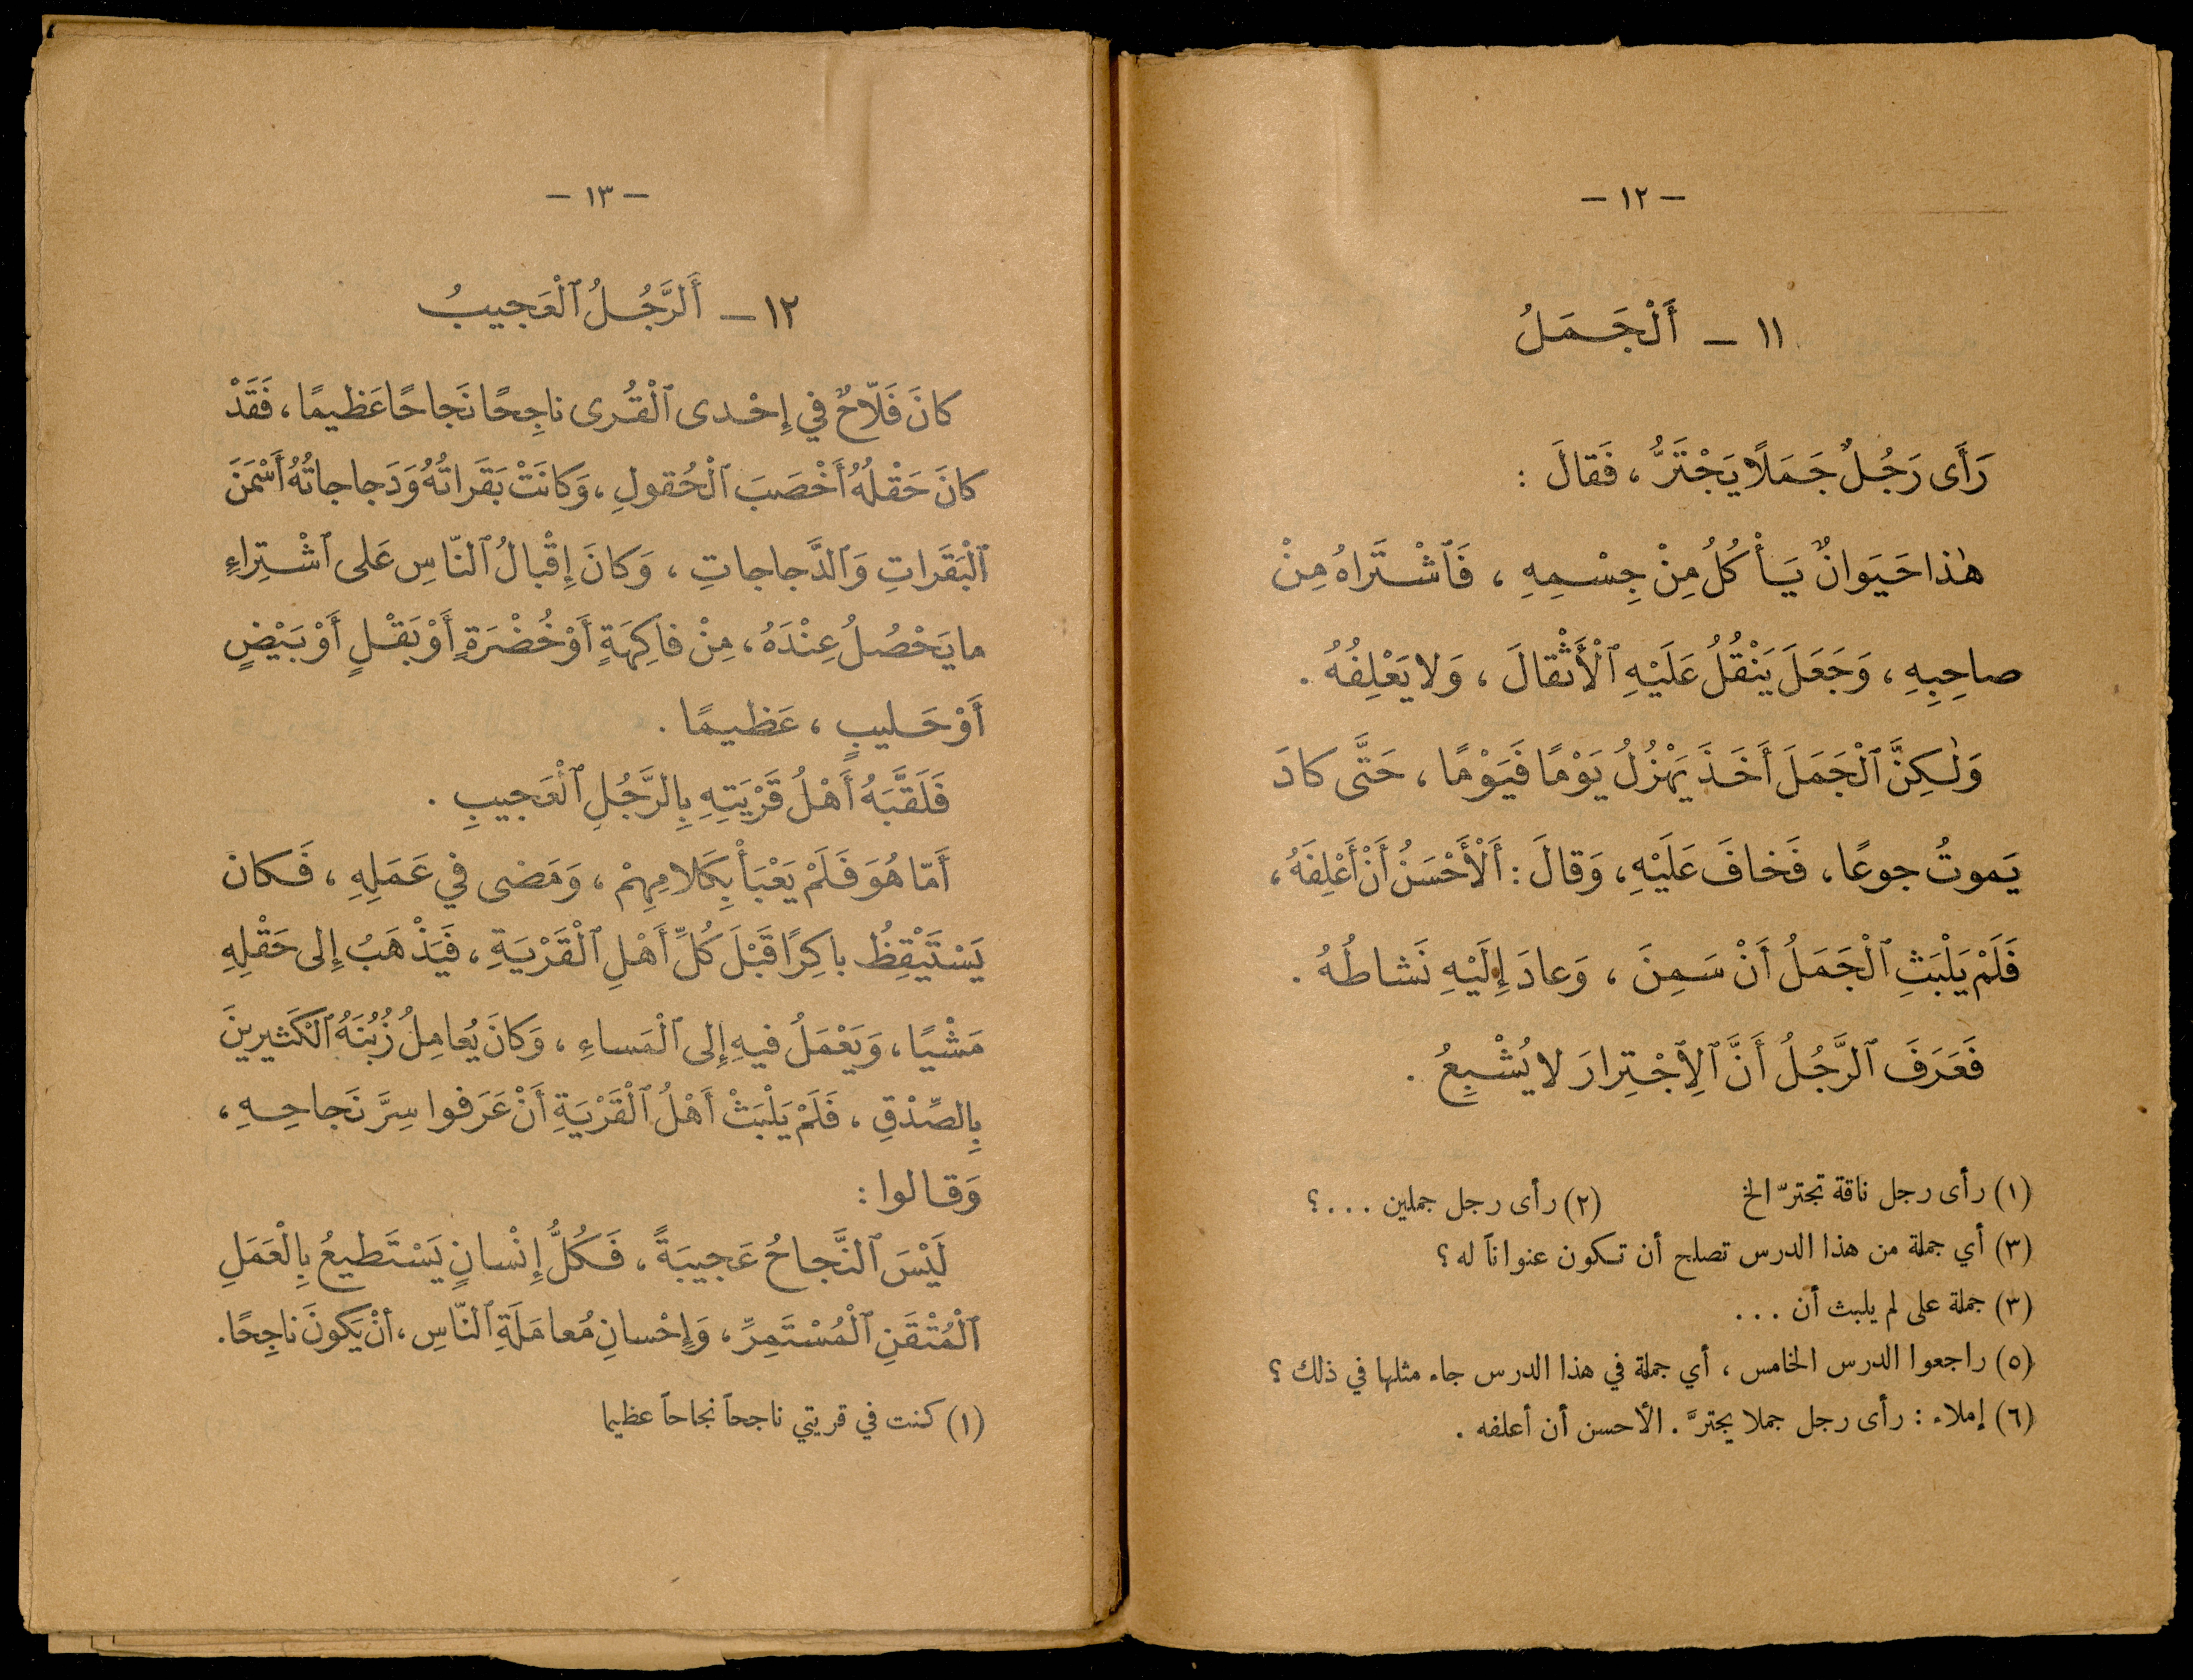 — ١٢ —
١١ — أَلْجَمَلُ
رَأَى رَجُلٌ جَمَلًا يَجْتَرُّ ، فَقالَ :
هٰذا حَيَوانٌ يَأْكُلُ مِنْ جِسْمِهِ ، فَٱشْتَراهُ مِنْ
صاحِبِهِ ، وَجَعَلَ يَنْقُلُ عَلَيْهِ ٱلْأَثْقالَ ، وَلا يَعْلِفُهُ .
وَلٰكِنَّ ٱلْجَمَلَ أَخَذَ يَهْزُلُ يَوْمًا فَيَوْمًا ، حَتَّى كادَ
يَموتُ جوعًا ، فَخافَ عَلَيْهِ ، وَقالَ : أَلْأَحْسَنُ أَنْ أَعْلِفَهُ ،
فَلَمْ يَلْبَثِ ٱلْجَمَلُ أَنْ سَمِنَ ، وَعادَ إِلَيْهِ نَشاطُهُ .
فَعَرَفَ ٱلرَّجُلُ أَنَّ ٱلِٱجْتِرارَ لا يُشْبِعُ .
(١) رأى رجل ناقة تجترّ الخ (٢) رأى رجل جملين ... ؟
(٣) أي جملة من هذا الدرس تصلح أن تكون عنواناً له ؟
(٣) جملة على لم يلبث أن ...
(٥) راجعوا الدرس الخامس ، أي جملة في هذا الدرس جاء مثلها في ذلك ؟
(٦) إملاء : رأى رجل جملا يجترَّ . الأحسن أن أعلفه .
— ١٣ —
١٢ — أَلرَّجُلُ ٱلْعَجيبُ
كانَ فَلّاحٌ في إِحْدى ٱلْقُرى ناجِحًا نَجاحًا عَظيمًا ، فَقَدْ
كانَ حَقْلُهُ أَخْصَبَ ٱلْحُقولِ ، وَكانَتْ بَقَراتُهُ وَدَجاجاتُهُ أَسْمَنَ
ٱلْبَقَراتِ وَٱلدَّجاجاتِ ، وَكانَ إِقْبالُ ٱلنّاسِ عَلى ٱشْتِراءِ
ما يَحْصُلُ عِنْدَهُ ، مِنْ فاكِهَةٍ أَوْ خُضْرَةٍ أَوْ بَقْلٍ أَوْ بَيْضٍ
أَوْ حَليبٍ ، عَظيمًا .
فَلَقَّبَهُ أَهْلُ قَرْيَتِهِ بِالرَّجُلِ ٱلْعَجيبِ .
أَمّا هُوَ فَلَمْ يَعْبَأْ بِكَلامِهِمْ ، وَمَضى في عَمَلِهِ ، فَكانَ
يَسْتَيْقِظُ باكِرًا قَبْلَ كُلِّ أَهْلِ ٱلْقَرْيَةِ ، فَيَذْهَبُ إِلى حَقْلِهِ
مَشْيًا ، وَيَعْمَلُ فيهِ إِلى ٱلْمَساءِ ، وَكانَ يُعامِلُ زُبُنَهُ ٱلْكَثيرينَ
بِالصِّدْقِ ، فَلَمْ يَلْبَثْ أَهْلُ ٱلْقَرْيَةِ أَنْ عَرَفوا سِرَّ نَجاحِهِ ،
وَقالوا :
لَيْسَ ٱلنَّجاحُ عَجيبَةً ، فَكُلُّ إِنْسانٍ يَسْتَطيعُ بِالْعَمَلِ
ٱلْمُتْقَنِ ٱلْمُسْتَمِرِّ ، وَإِحْسانِ مُعامَلَةِ ٱلنّاسِ ، أَنْ يَكونَ ناجِحًا .
(١) كنت في قريتي ناجحاً نجاحاً عظيما